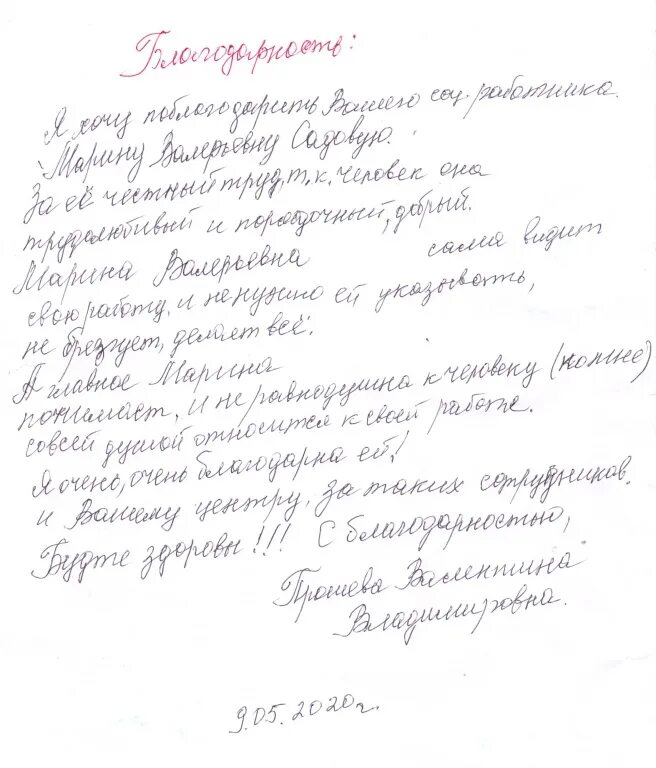 Благодарность:
Я хочу поблагодарить Вашего соц. работника.
Марину Валерьевну Садовую.
За её честный труд, т.к. человек она
трудолюбивый и порядочный, добрый.
Марина Валерьевна сама видит
свою работу, и ненужно ей указывать,
не брезгует, делает всё.
А главное Марина
понимает, и не равнодушна к человеку (комне)
совсей душой относится к своей работе.
Я очень, очень благодарна ей!
и Вашему центру, за таких сотрудников.
Будте здоровы!!! С благодарностью,
Прошева Валентина
Владимировна.
9.05.2020г.